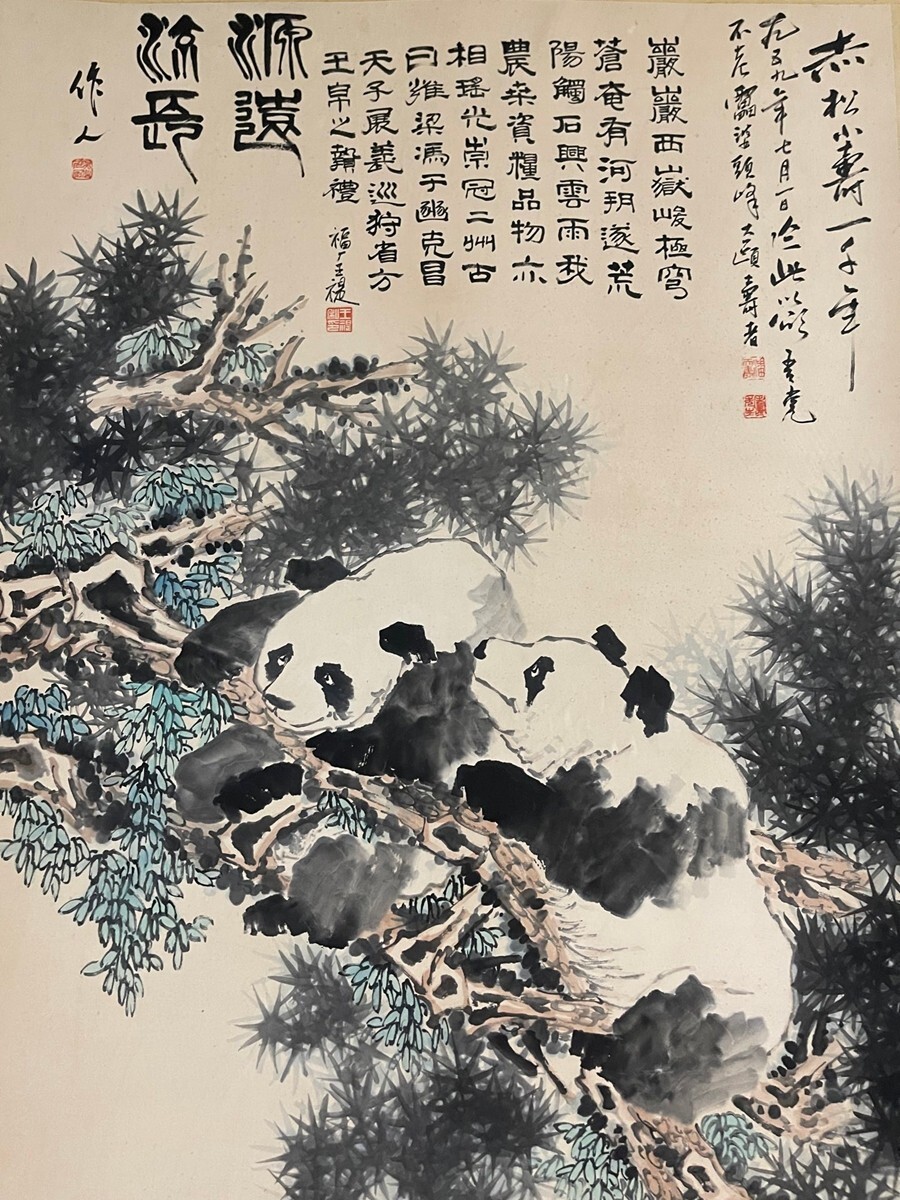 赤松小壽一千年
一九五九年七月一日唫此以頌吾黨
不老 大頤壽者
巖巖西嶽峻極穹
蒼奄有河朔遂荒
陽觸石興雲雨我
農桑資糧品物亦
相瑤光崇冠二州古
曰雍梁馮于豳克昌
天子展義巡狩省方
王帛之贄禮 福厂王禔
源遠
流長
作人